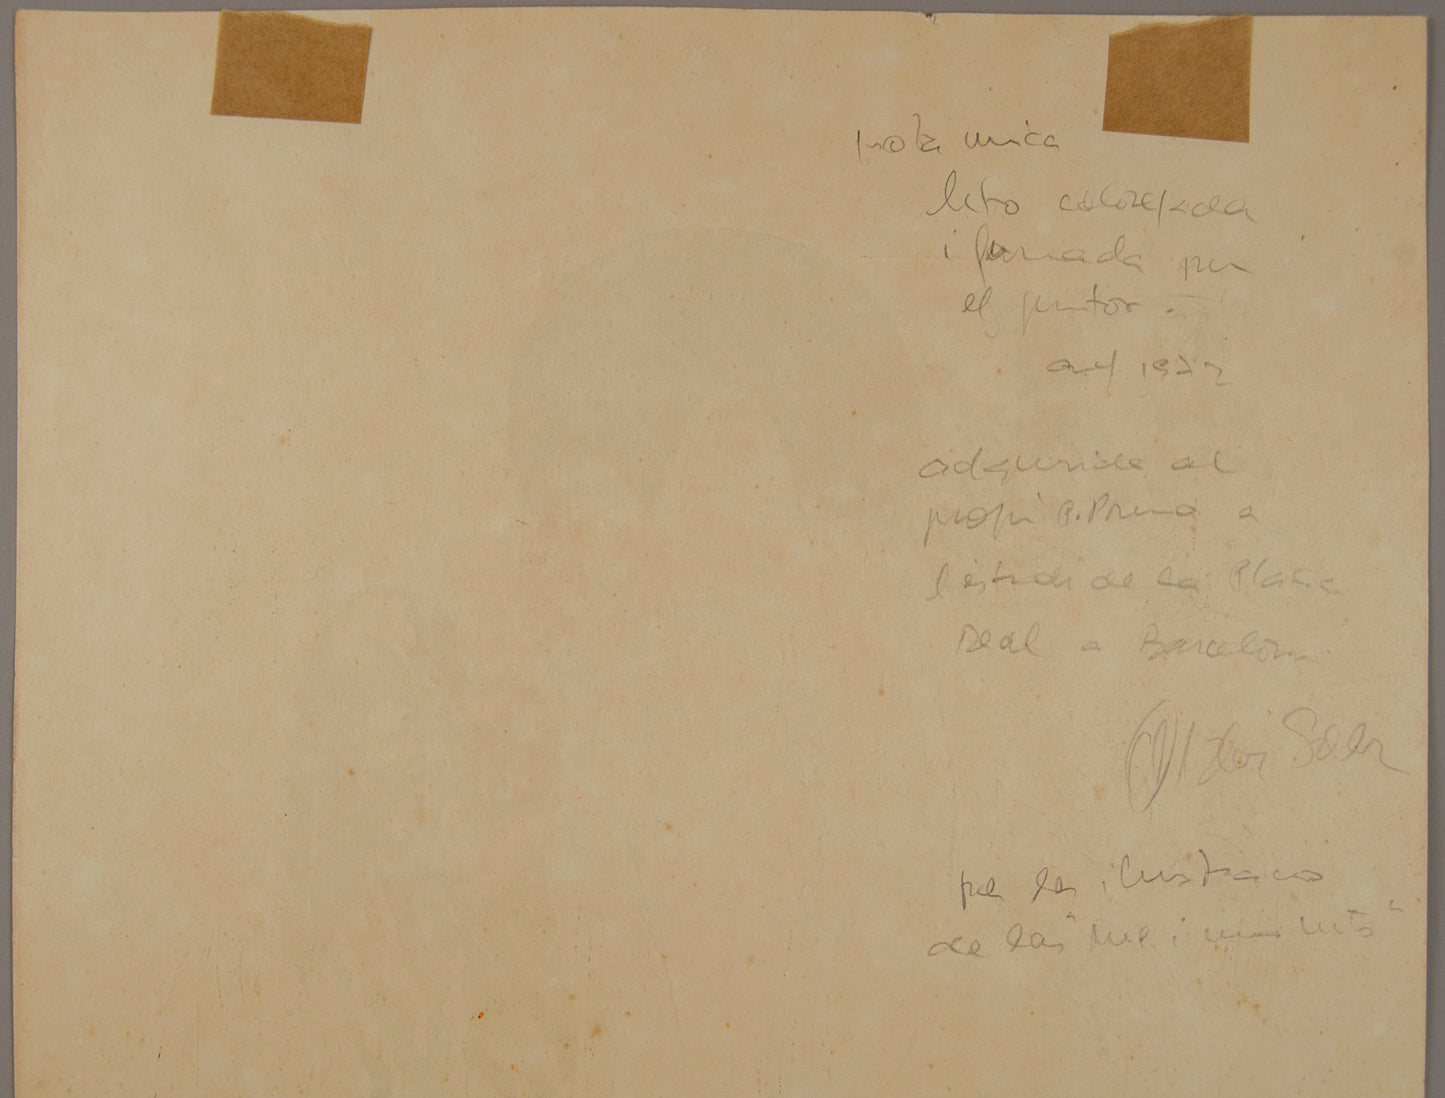 prova unica
lito colorejada
i firmada per
el pintor.
any 1972
adquirida al
propi P. Pruna a
l'estudi de la Plaça
Real a Barcelona
Soler
per les ilustracions
de las "Mil i una nits"